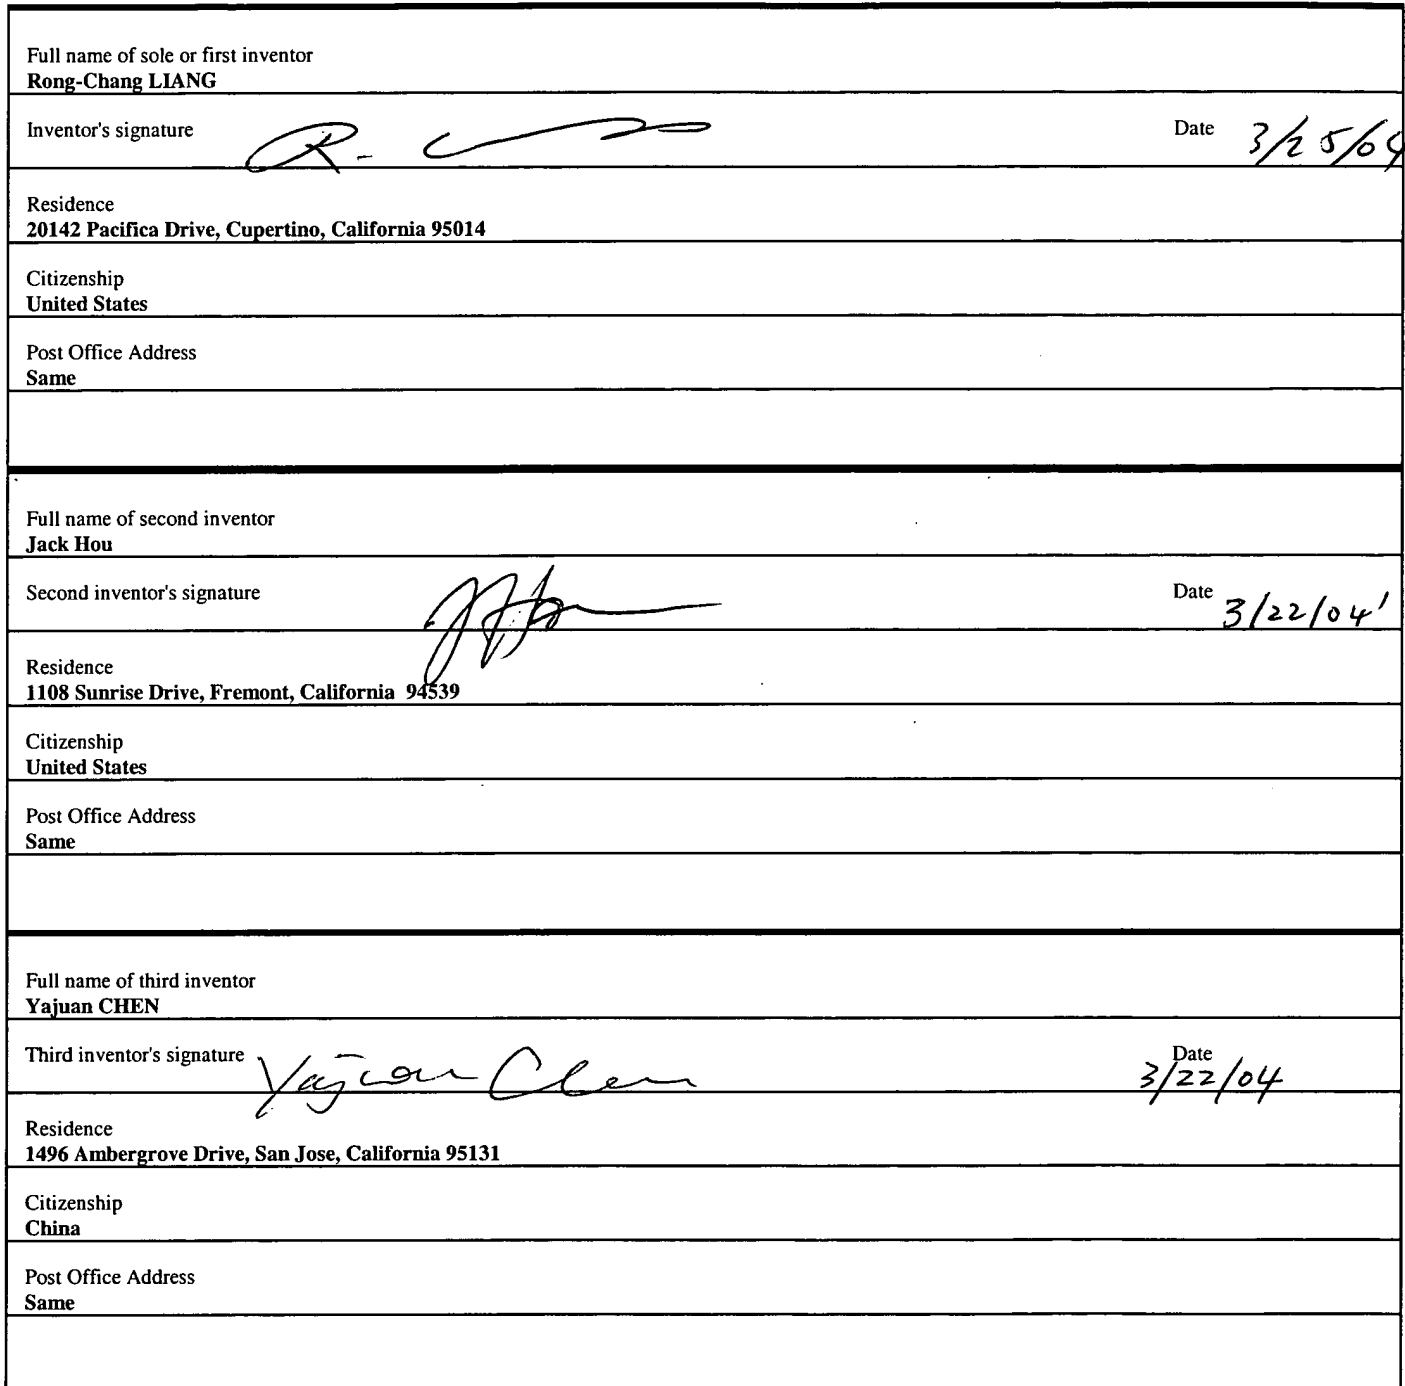 Full name of sole or first inventor
Rong-Chang LIANG
Inventor's signature R. Date 3/25/04
Residence
20142 Pacifica Drive, Cupertino, California 95014
Citizenship
United States
Post Office Address
Same
Full name of second inventor
Jack Hou
Second inventor's signature Date 3/22/04
Residence
1108 Sunrise Drive, Fremont, California 94539
Citizenship
United States
Post Office Address
Same
Full name of third inventor
Yajuan CHEN
Third inventor's signature Yajuan Chen Date 3/22/04
Residence
1496 Ambergrove Drive, San Jose, California 95131
Citizenship
China
Post Office Address
Same